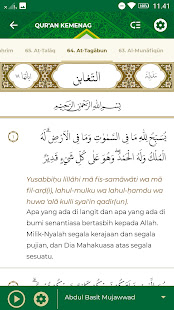 11.41
QUR'AN KEMENAG
65. At-Talāq
64. At-Tagābun
63. Al-Munāfiqūn
التغابن
بِسْمِ اللّٰهِ الرَّحْمٰنِ الرَّحِيْمِ
يُسَبِّحُ لِلّٰهِ مَا فِى السَّمٰوٰتِ وَمَا فِى الْاَرْضِۚ لَهُ
الْمُلْكُ وَلَهُ الْحَمْدُۖ وَهُوَ عَلٰى كُلِّ شَيْءٍ قَدِيْرٌ
Yusabbiḥu lillāhi mā fis-samāwāti wa mā
fil-arḍ(i), lahul-mulku wa lahul-ḥamdu wa
huwa ‘alā kulli syai'in qadīr(un).
Apa yang ada di langit dan apa yang ada di
bumi senantiasa bertasbih kepada Allah.
Milik-Nyalah segala kerajaan dan segala
pujian, dan Dia Mahakuasa atas segala
sesuatu.
Abdul Basit Mujawwad